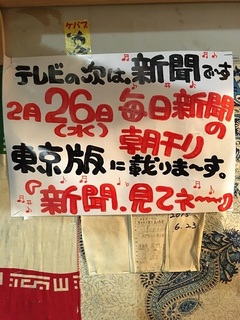 ケバブ
テレビの次は、新聞です
2月26日(水)毎日新聞の
朝刊
東京版に載りま〜す。
『新聞、見てネ〜〜』
6.23